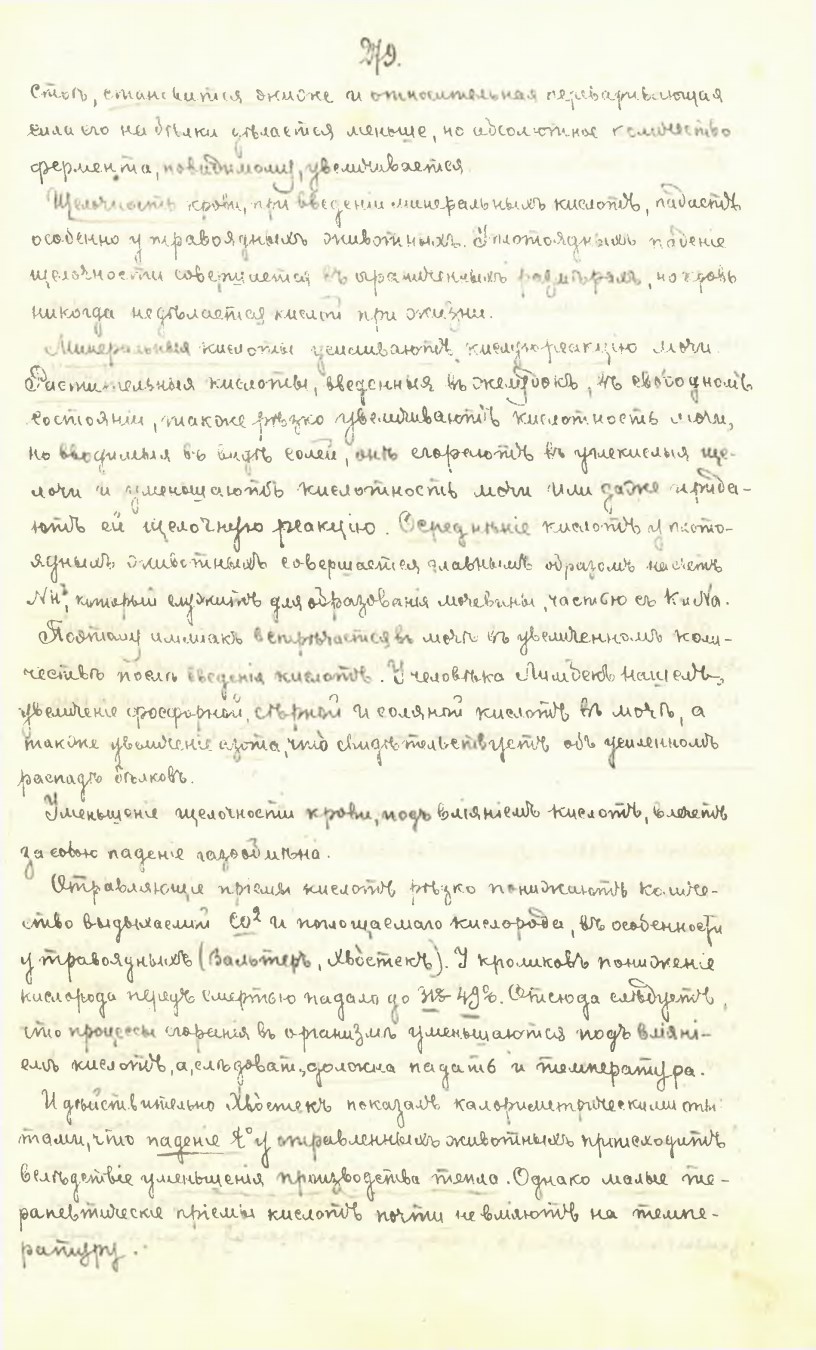 279.
становится ниже и относительная переваривающая
сила его на бѣлки дѣлается меньше, но абсолютное количество
фермента, повидимому, увеличивается
Щелочность крови, при введеніи минеральныхъ кислотъ, падаетъ
особенно у травоядныхъ животныхъ. У плотоядныхъ паденіе
щелочности совершается въ ограниченныхъ размѣрахъ, но кровь
никогда не дѣлается кислой при жизни.
Минеральныя кислоты усиливаютъ кислую реакцію мочи
Растительныя кислоты, введенныя въ желудокъ, въ свободномъ
состояніи, также рѣзко увеличиваютъ кислотность мочи,
но вводимыя въ видѣ солей, онѣ сгораютъ въ углекислыя ще-
лочи и уменьшаютъ кислотность мочи или даже прида-
ютъ ей щелочную реакцію. кислотъ у плото-
ядныхъ животныхъ совершается главнымъ образомъ на счетъ
NH³, который служитъ для образованія мочевины, частью съ K и Na.
Поэтому амміакъ встрѣчается въ мочѣ въ увеличенномъ коли-
чествѣ послѣ введенія кислотъ. У человѣка Лимбекъ нашелъ
увеличеніе фосфорной, сѣрной и соляной кислотъ въ мочѣ, а
также увеличеніе азота, что свидѣтельствуетъ объ усиленномъ
распадѣ бѣлковъ.
Уменьшеніе щелочности крови, подъ вліяніемъ кислотъ, влечетъ
за собою паденіе газообмѣна.
Отравляющіе пріемы кислотъ рѣзко понижаютъ количе-
ство выдыхаемой CO² и поглощаемаго кислорода, въ особенности
у травоядныхъ (Вальтеръ, Хвостекъ). У кроликовъ пониженіе
кислорода передъ смертью падало до 49%. Отсюда слѣдуетъ,
что процессы сгоранія въ организмѣ уменьшаются подъ вліяні-
емъ кислотъ, а, слѣдоват., должна падать и температура.
И дѣйствительно Хвостекъ показалъ калориметрическими опы
тами, что паденіе t° у отравленныхъ животныхъ происходитъ
вслѣдствіе уменьшенія производства тепла. Однако малые те-
рапевтическіе пріемы кислотъ почти не вліяютъ на темпе-
ратуру.